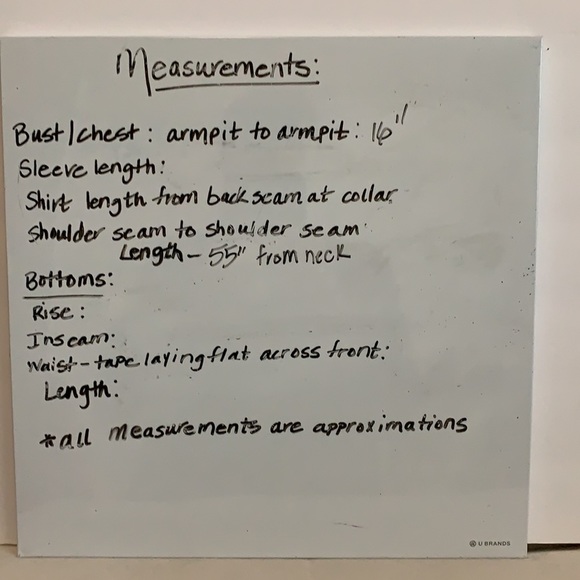 Measurements:
Bust/chest: armpit to armpit: 16"
Sleeve length:
Shirt length from back seam at collar
Shoulder seam to shoulder seam
Length - 55" from neck
Bottoms:
Rise:
Inseam:
Waist - tape laying flat across front:
Length:
*all measurements are approximations
U BRANDS